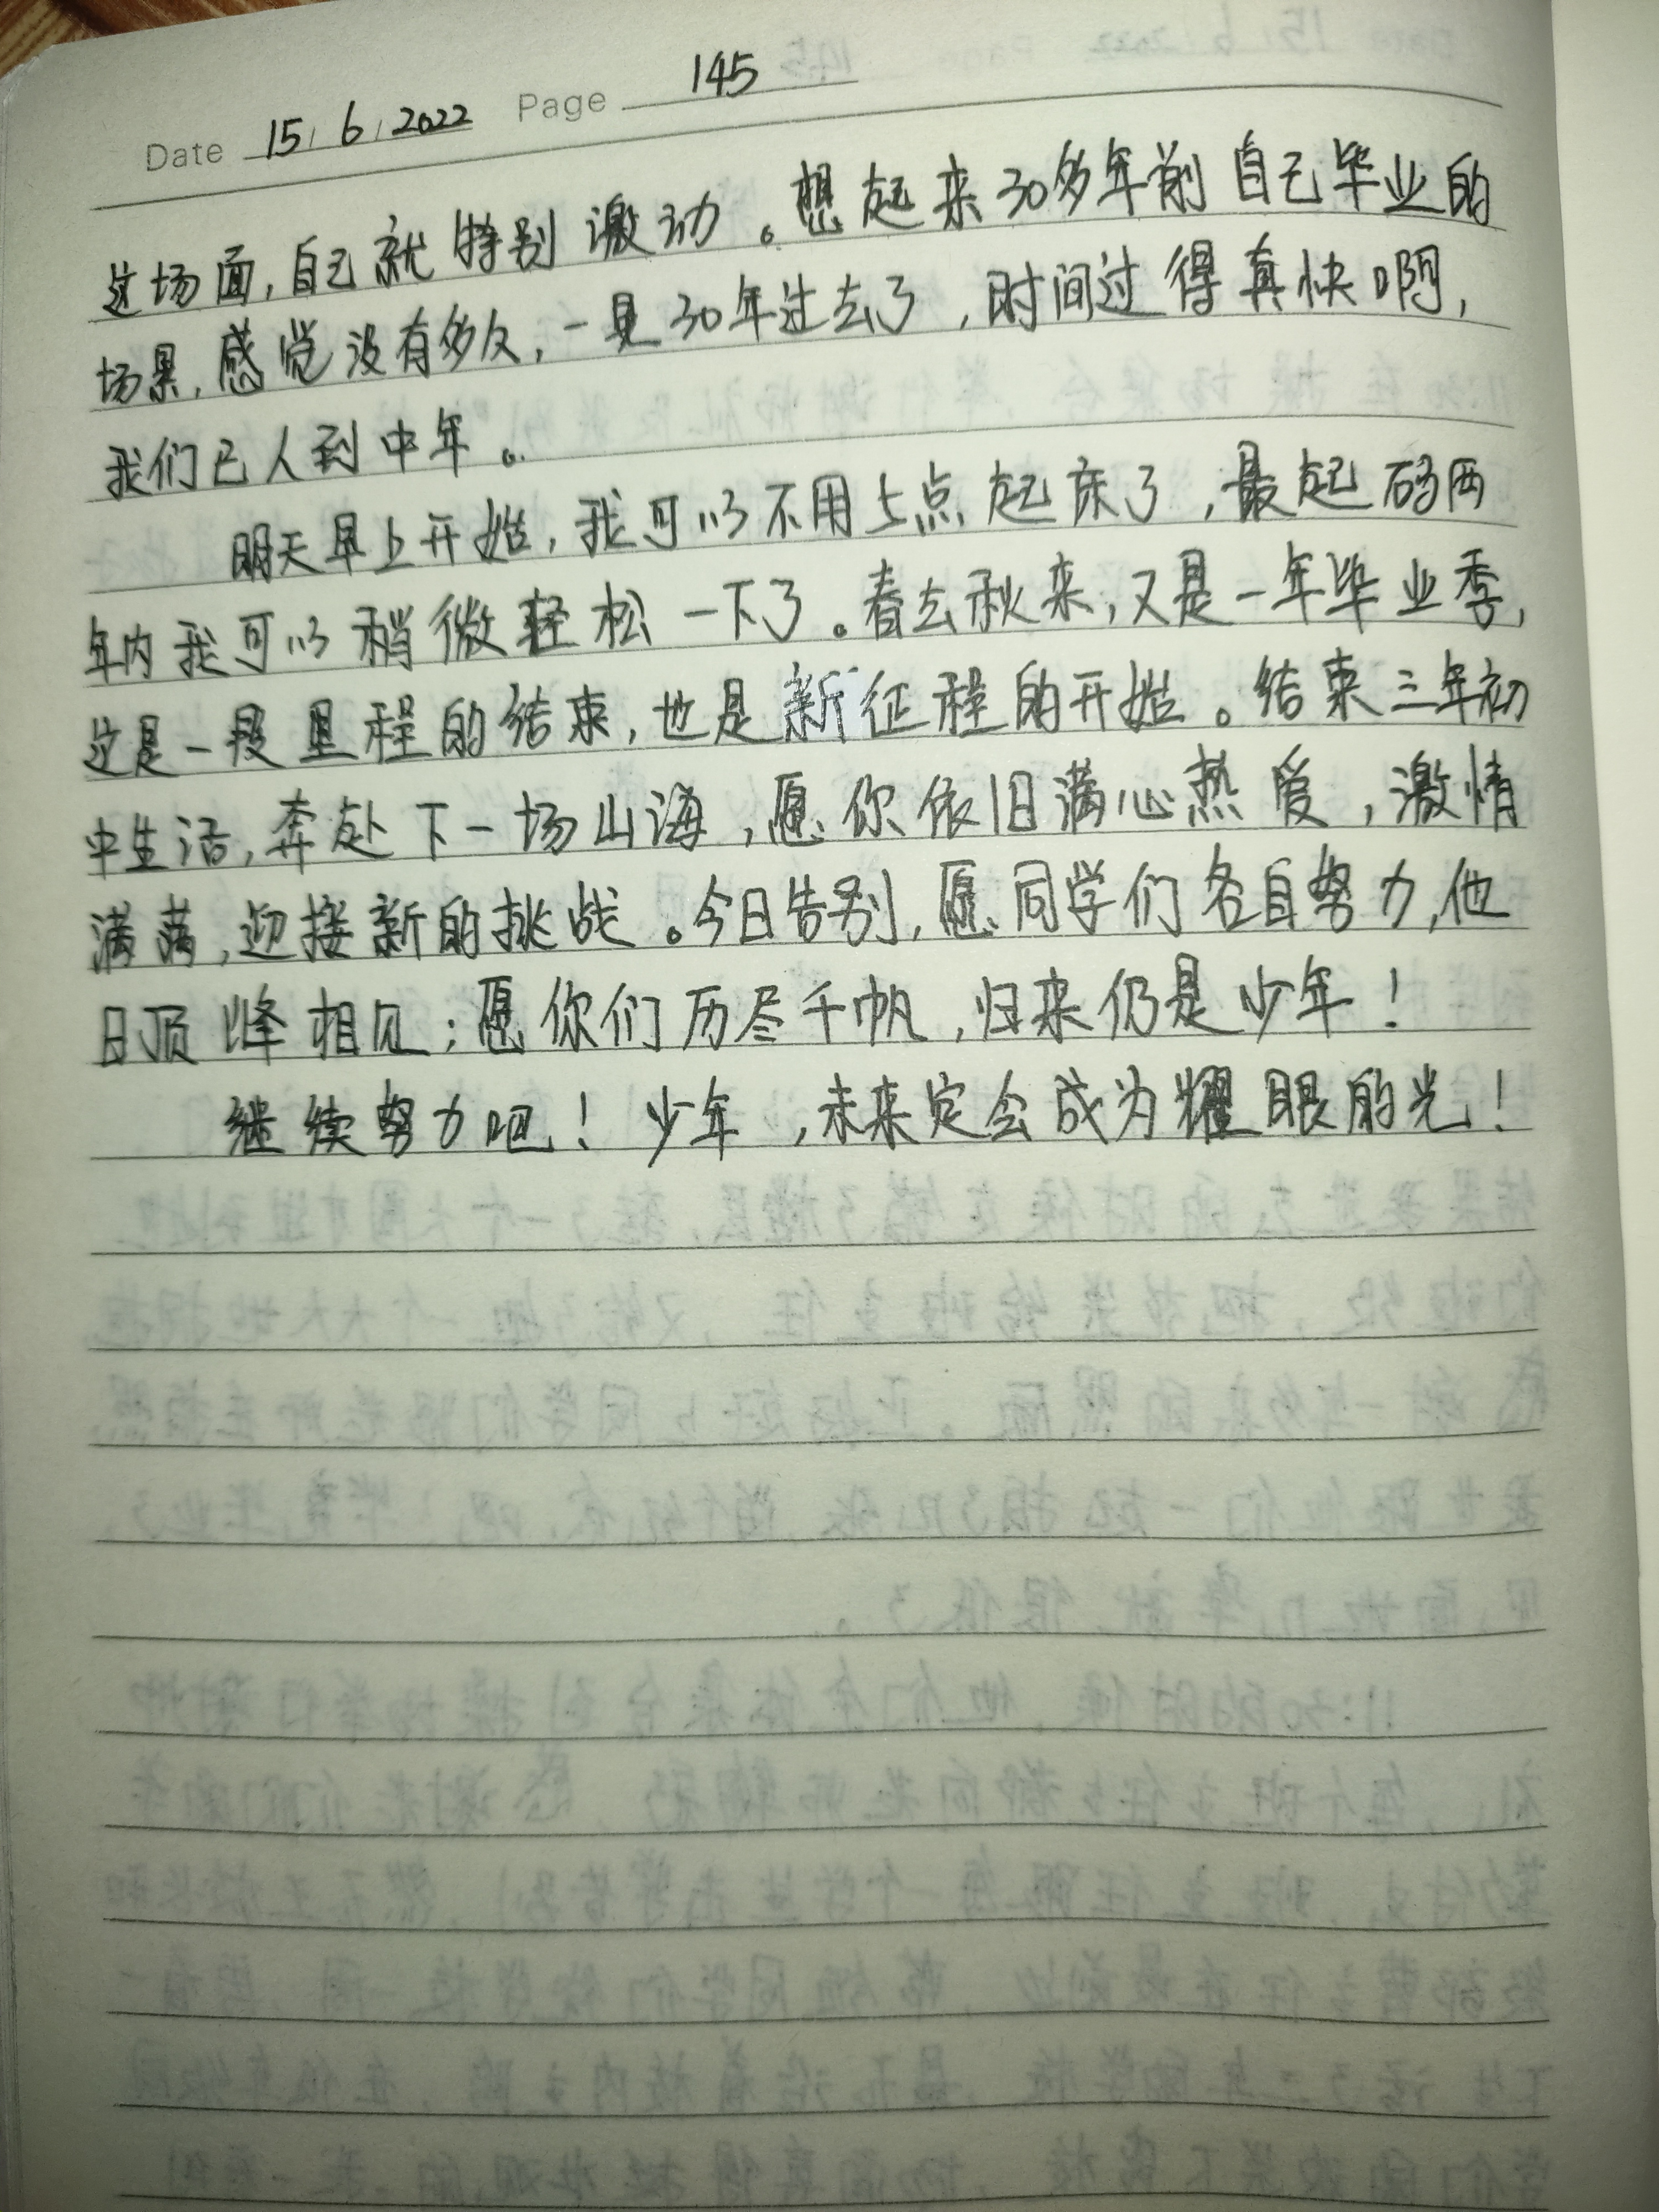 Date 15/6/2022 Page 145
这场面,自己就特别激动。想起来30多年前自己毕业的
场景,感觉没有多久,一晃30年过去了,时间过得真快啊,
我们已人到中年。
明天早上开始,我可以不用5点起床了,最起码两
年内我可以稍微轻松一下了。春去秋来,又是一年毕业季,
这是一段里程的结束,也是新征程的开始。结束三年初
中生活,奔赴下一场山海,愿你依旧满心热爱,激情
满满,迎接新的挑战。今日告别,愿同学们各自努力,他
日顶峰相见;愿你们历尽千帆,归来仍是少年!
继续努力吧!少年,未来定会成为耀眼的光!